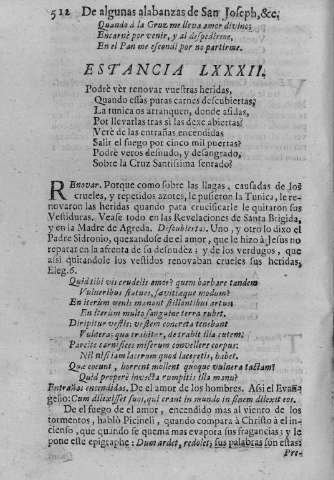 512 De algunas alabanzas de San Joseph, &c.
Quando à la Cruz me lleva amor divino;
Encarnè por venir, y al despedirme,
En el Pan me escondì por no partirme.
ESTANCIA LXXXII.
Podrè vèr renovar vuestras heridas,
Quando essas puras carnes descubiertas,
La tunica os arranquen, donde asidas,
Por llevarlas tras si las dexe abiertas?
Verè de las entrañas encendidas
Salir el fuego por cinco mil puertas?
Podrè veros desnudo, y desangrado,
Sobre la Cruz Santissima sentado?
REnovar. Porque como sobre las llagas, causadas de los
crueles, y repetidos azotes, le pusieron la Tunica, le re-
novaron las heridas quando para crucificarle le quitaron sus
Vestiduras. Vease todo en las Revelaciones de Santa Brigida,
y en la Madre de Agreda. Descubiertas. Uno, y otro lo dixo el
Padre Sidronio, quexandose de el amor, que le hizo à Jesus no
reparar en la afrenta de su desnudèz; y de los verdugos, que
assi quitandole los vestidos renovaban crueles sus heridas,
Eleg. 6.
Quid tibi vis crudelis amor? quem barbare tandem
Vulneribus statues, sævitiæque modum?
En iterùm venis manant stillantibus artus:
En iterùm multo sanguine terra rubet.
Diripitur vestis: vestem concreta tenebant
Vulnera: qua trahitur, detrahit illa cutem:
Parcite carnifices miserum convellere corpus:
Nil nisi tam lacerum quod laceretis, habet.
Quæ coeunt, horrent mollent quoque vulnera tactum:
Quid properè invecta rumpitis illa manu?
Entrañas encendidas. De el amor de los hombres. Assi el Evan-
gelio: Cum dilexisset suos, qui erant in mundo in finem dilexit eos.
De el fuego de el amor, encendido mas al viento de los
tormentos, hablò Picineli, quando compara à Christo à el in-
cienso, que quando se quema mas evapora sus fragancias; y le
pone este epigraphe: Dum ardet, redolet; sus palabras son estas:
Pre-